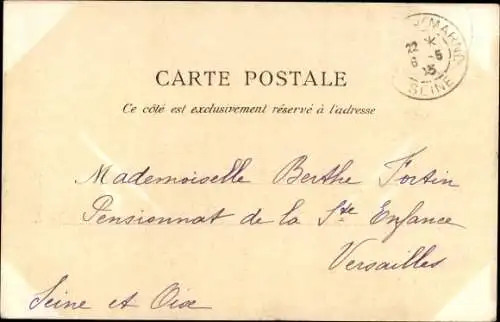 CARTE POSTALE
Ce côté est exclusivement réservé à l'adresse
Mademoiselle Berthe Fortin
Pensionnat de la Ste Enfance
Versailles
Seine et Oise
SEINE